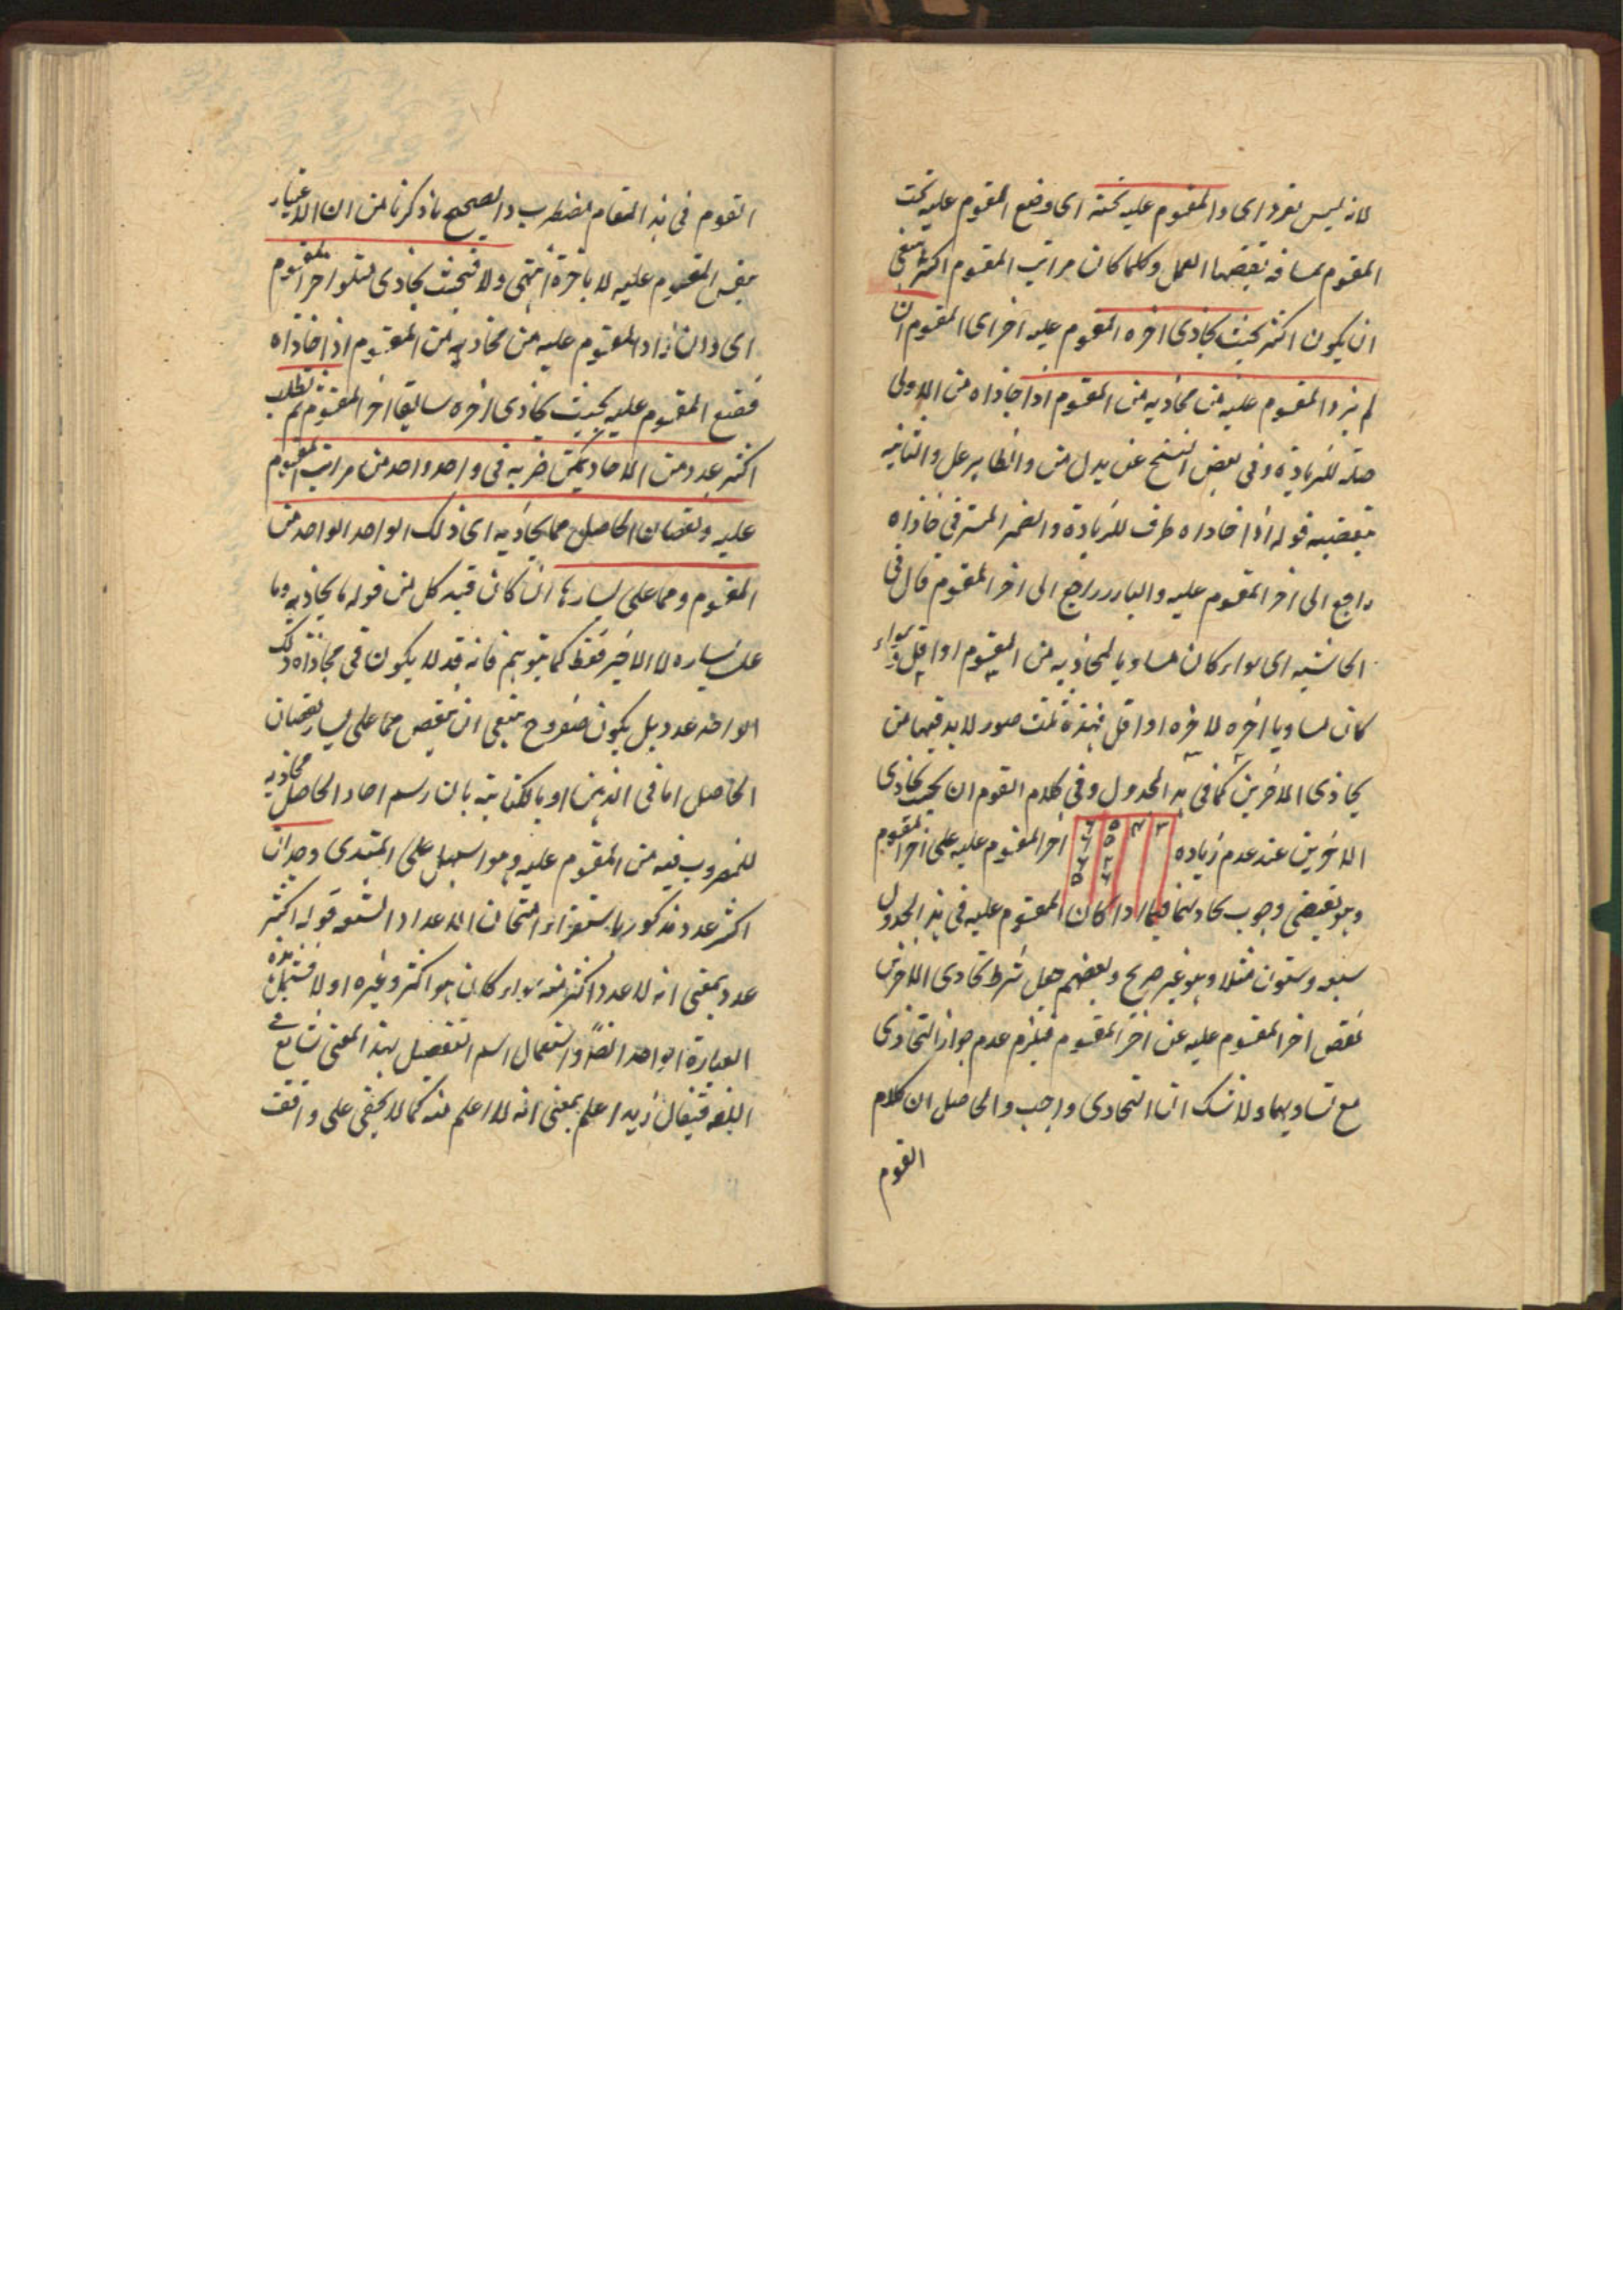 لانه ليس بفرد اى والمقسوم عليه تحته اى وضع المقسوم عليه تحت
المقسوم بمسافة يقتضيها العمل وكلما كان مراتب المقسوم اكثر ينبغى
ان يكون اكثر بحيث يحاذى اخره المقسوم عليه اخر اى المقسوم ان
لم يزد المقسوم عليه من محاذيه من المقسوم اذا حاذاه من الاولى
صلة للزيادة وفى بعض النسخ عن بدل من والظاهر على والثانية
تبعيضيه قوله اذا حاذاه ظرف للزيادة والضمير المستتر فى حاذاه
راجع الى اخر المقسوم عليه والبارز راجع الى اخر المقسوم قال فى
الحاشيه اى سواء كان مساويا لمحاذيه من المقسوم او اقل وسواء
كان مساويا اخره لاخره او اقل فهذه ثلث صور لابد فيها من
تحاذى الاخرين كما فى هذا الجدول وفى كلام القوم ان يجب تحاذى
الاخرين عند عدم زياده اخر المقسوم عليه على اخر المقسوم
وهو يقتضى وجوب تحاذيهما فيما اذا كان المقسوم عليه فى هذا الجدول
سبعه وستون مثلا وهو غير صحيح وبعضهم جعل شرط تحاذى الاخرين
نقص اخر المقسوم عليه عن اخر المقسوم فيلزم عدم جواز التحاذى
مع تساويهما ولا شك ان التحاذى واجب والحاصل ان كلام
القوم
القوم فى هذا المقام مضطرب والصحيح ما ذكرنا من ان الاعتبار
بنفس المقسوم عليه لا باخره انتهى ولا فبحيث يحاذى متلو اخر المقسوم
اى وان زاد المقسوم عليه من محاذيه من المقسوم اذا حاذاه
فضع المقسوم عليه بحيث يحاذى اخره سابق اخر المقسوم ثم تطلب
اكثر عدد من الاحاد يمكن ضربه فى واحد واحد من مراتب المقسوم
عليه ونقصان الحاصل مما يحاذيه اى ذلك الواحد الواحد من
المقسوم ومما على يسارها ان كان قيد كل من قوله ما يحاذيه وما
على يساره لا الاخير فقط كما يتوهم فانه قد لا يكون فى محاذاه ذلك
الواحد عدد بل يكون صفر وح ينبغى ان ينقص مما على يسار نقصان
الحاصل اما فى الذهن او بالكتابة بان رسم احاد الحاصل محاذيه
للمضروب فيه من المقسوم عليه وهو اسهل على المبتدى وجدان
اكثر عدد مذكور باستقراء امتحان الاعداد التسعه قوله اكثر
عدد بمعنى انه لا عدد اكثر منه سواء كان هو اكثر وغيره او لا فيشمل هذه
العبارة الواحد ايضًا واستعمال اسم التفضيل بهذا المعنى شايع فى
اللغه فيقال زيد اعلم بمعنى انه لا اعلم منه كما لا يخفى على واقف